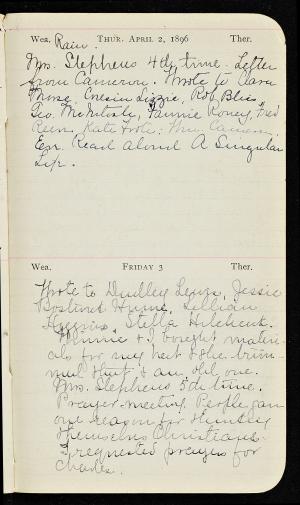 Wea. Rain. THUR. APRIL 2, 1896 Ther.
Mrs. Stephens 4th time. Letter
from Cameron. Wrote to Clara
Morse, Cousin Lizzie, Rob Bliss,
Geo. McIntosh, Fannie Roney, Fred
Kate Foote, Cameron.
Eve. Read aloud A Singular
Life.
Wea. FRIDAY 3 Ther.
Wrote to Dudley Jessie
Bostwick Hume, Lillian
Higgins, Stella Hitchcock.
Minnie & I bought materi-
als for my hat & she trim-
med that & an old one.
Mrs. Stephens 5th time.
Prayer-meeting. People gave
one reason for
themselves Christians.
I requested prayers for
Charles.